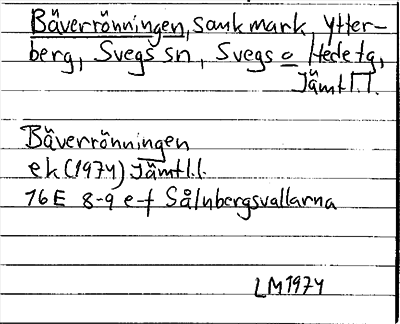 Bäverrönningen, samk mark, Ytter-
berg, Svegs sn, Svegs o Hede tg,
Jämtl.l.
Bäverrönningen
ek (1974) Jämtl.l.
16E 8-9 e-f Sålnbergsvallarna
LM 1974